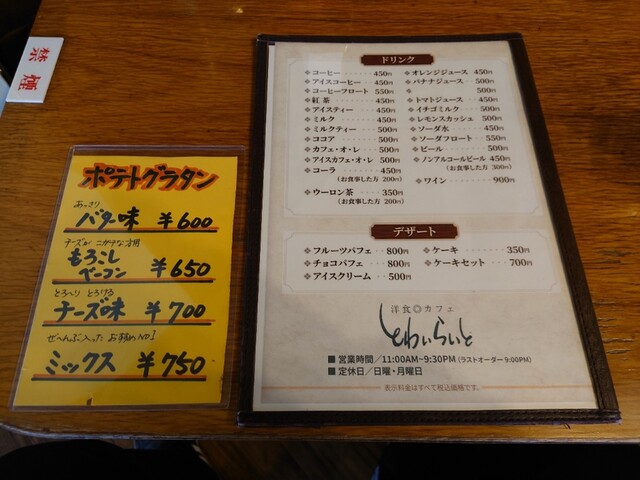 禁煙
ポテトグラタン
あっさり
バター味 ¥600
チーズが ニガテな方用
もろこし
ベーコン ¥650
とろ〜り とろける
チーズ味 ¥700
ぜ〜んぶ入った お すすめ NO1
ミックス ¥750
ドリンク
コーヒー 450円
アイスコーヒー 450円
コーヒーフロート 550円
紅茶 450円
アイスティー 450円
ミルク 450円
ミルクティー 500円
ココア 500円
カフェ・オ・レ 500円
アイスカフェ・オ・レ 500円
コーラ 450円
(お食事した方 200円)
ウーロン茶 350円
(お食事した方 200円)
オレンジジュース 450円
バナナジュース 500円
500円
トマトジュース 450円
イチゴミルク 500円
レモンスカッシュ 500円
ソーダ水 450円
ソーダフロート 550円
ビール 500円
ノンアルコールビール 450円
(お食事した方 300円)
ワイン 900円
デザート
フルーツパフェ 800円
チョコパフェ 800円
アイスクリーム 500円
ケーキ 350円
ケーキセット 700円
洋食◎カフェ
とわいらいと
■営業時間/11:00AM~9:30PM (ラストオーダー 9:00PM)
■定休日/日曜・月曜日
表示料金はすべて税込価格です。